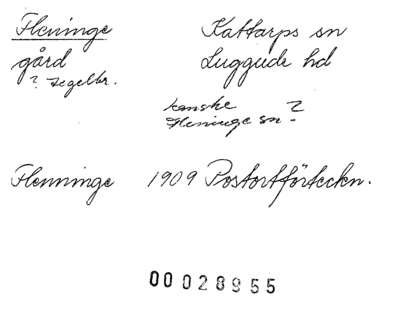 Fleninge Kattarps sn
gård Luggude hd
? Tegelbr.
kanske ?
Fleninge sn.
Flenninge 1909 Postortförteckn.
00028955